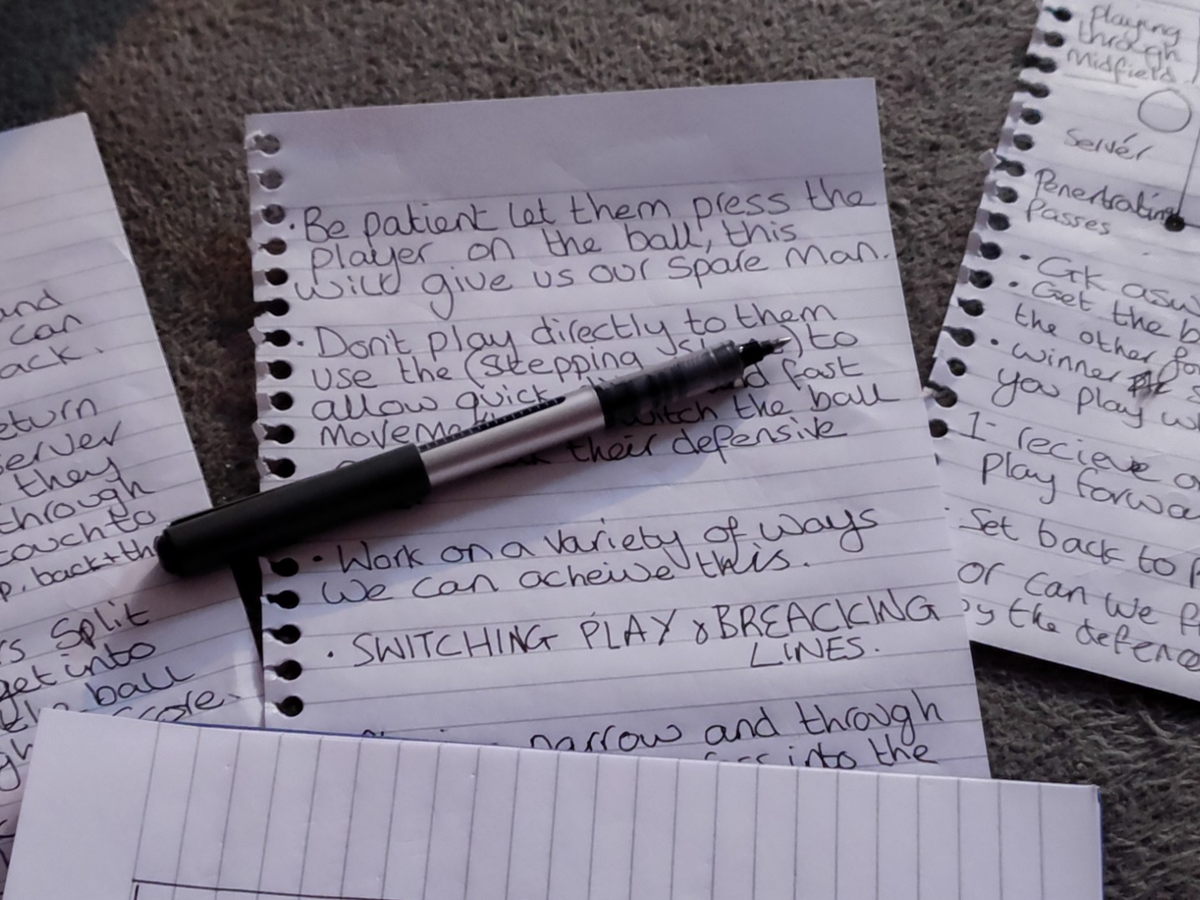 and
can
ack.
eturn
server
they
through
touch to
p. back + th
rs Split
get into
the ball
score.
• Be patient let them press the
player on the ball, this
will give us our spare man.
• Don't play directly to them
use the (stepping) to
allow quick fast
switch the ball
their defensive
• Work on a variety of ways
We can acheive this.
• SWITCHING PLAY & BREACKING
LINES.
narrow and through
into the
playing
through
Midfield
Server
Penertrating
Passes
• GK
• Get the b
the other
• winner
you play
1- recieve
play forwa
Set back to
or can we
by the defence